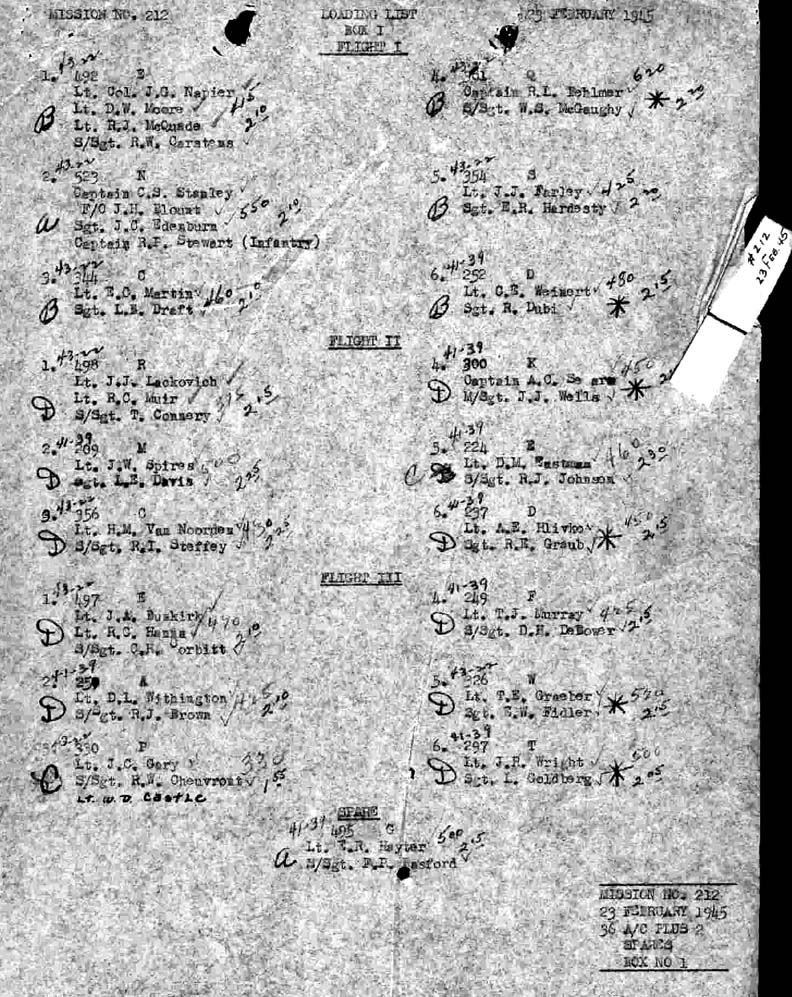 MISSION NO. 212
LOADING LIST
23 FEBRUARY 1945
BOX I
FLIGHT I
43-22
1. 492 E
Lt. Col. J.G. Napier
Lt. D.W. Moore 415
B Lt. R.J. McQuade 2:10
S/Sgt. R.W. Carstens
43-22
2. 523 N
Captain C.S. Stanley
F/O J.H. Blount 550
a Sgt. J.C. Edenburn 2:10
Captain R.F. Stewart (Infantry)
43-22
3. 344 C
Lt. E.C. Martin 460
B Sgt. L.E. Draft 2:10
43-22
4. Q
Captain R.L. Fehlmer 620
B S/Sgt. W.S. McGaughy * 2:20
43-22
5. 354 S
Lt. J.J. Farley 425
B Sgt. E.R. Hardesty 2:20
41-39
6. 252 D
Lt. C.E. Weinert 480
B Sgt. R. Dubi * 2:15
#212
23 Feb. 45
FLIGHT II
43-22
1. 498 R
Lt. J.J. Lackovich
D Lt. R.C. Muir
S/Sgt. T. Connery 2:15
41-39
2. 209 M
Lt. J.W. Spires
D Sgt. L.E. Davis 2:25
43-22
3. 956 C
Lt. H.M. Van Noorden 430
D S/Sgt. R.I. Steffey 2:25
41-39
4. 300 K
Captain A.C. Sears 450
D M/Sgt. J.J. Wells *
41-39
5. 224 E
Lt. D.M. Eastman 460
C S/Sgt. R.J. Johnson 2:30
41-39
6. 237 D
Lt. A.E. Hlivko 450
D Sgt. R.E. Graub * 2:15
FLIGHT III
43-22
1. 497 E
Lt. J.A. Buskirk
D Lt. R.C. Hanna 490
S/Sgt. C.R. Corbitt 2:10
41-39
2. 259 A
Lt. D.L. Withington
D S/Sgt. R.J. Brown 2:10
43-22
3. 330 P
Lt. J.C. Gary 330
C S/Sgt. R.W. Cheuvront 1:55
LT. W.D. CASTLE
41-39
4. 249 F
Lt. T.J. Murray 425
D S/Sgt. D.H. DeBower 2:15
43-22
5. 326 W
Lt. T.E. Graeber 520
D Sgt. E.W. Fidler * 2:15
41-39
6. 297 T
Lt. J.R. Wright 500
D Sgt. L. Goldberg * 2:05
SPARE
41-39
495 G
Lt. E.R. Hayter 500
a S/Sgt. F.R. Basford 2:15
MISSION NO. 212
23 FEBRUARY 1945
36 A/C PLUS 2
SPARES
BOX NO 1